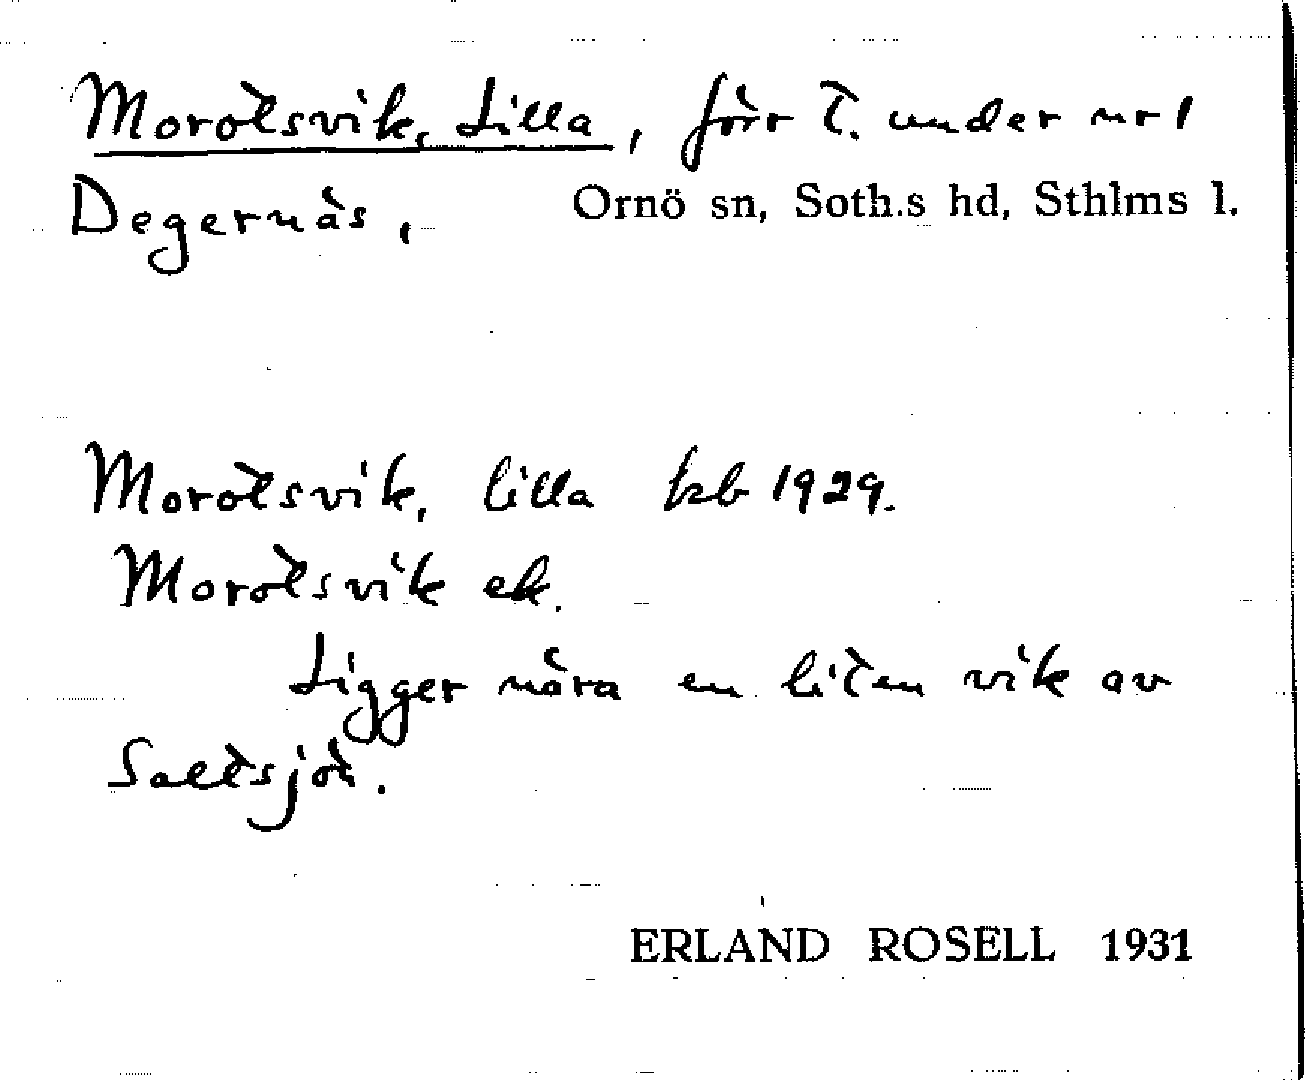 Morotsvik, Lilla, förr T. under nr 1
Degernäs, Ornö sn, Soth.s hd, Sthlms l.
Morotsvik, lilla kb 1929.
Morotsvik ek.
Ligger nära en liten vik av
Saltsjön.
ERLAND ROSELL 1931